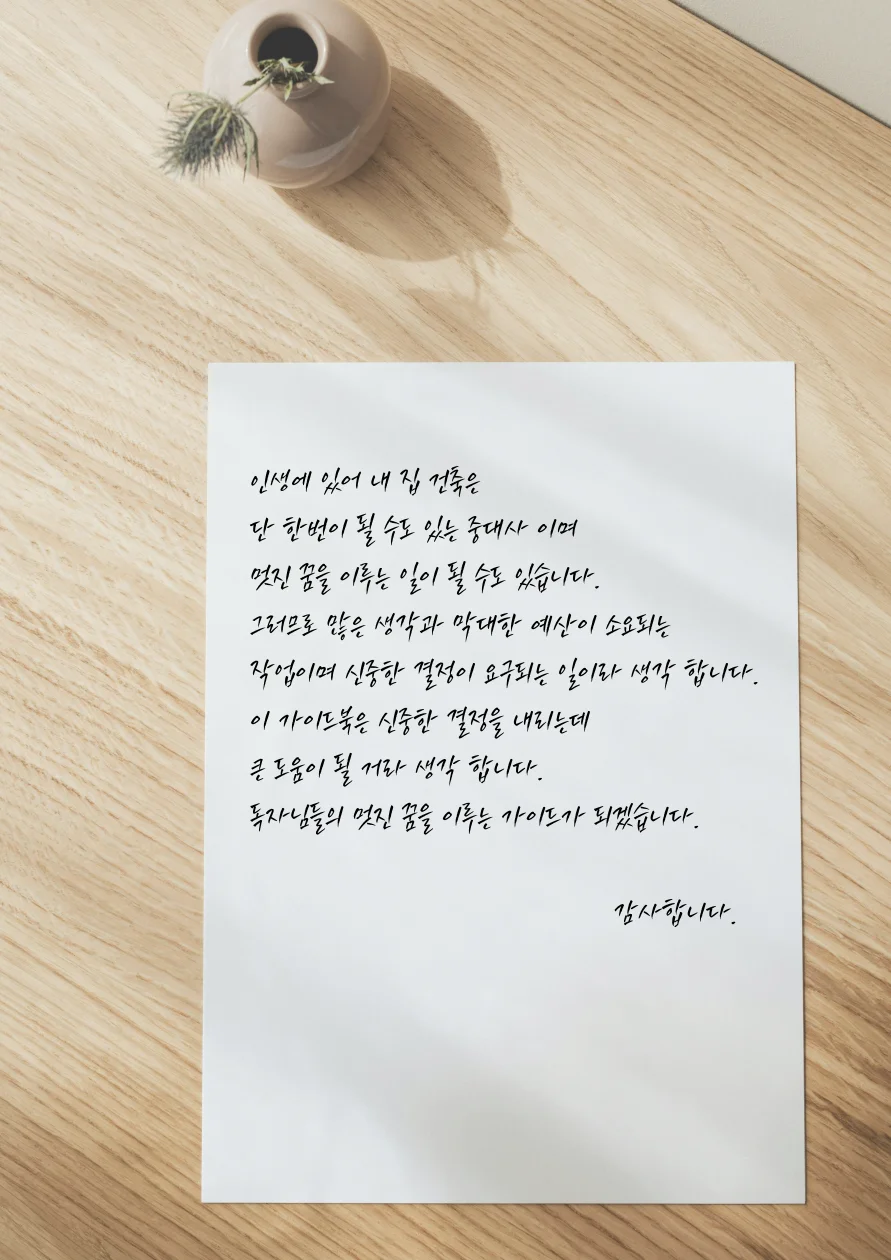 인생에 있어 내 집 건축은
단 한번이 될 수도 있는 중대사 이며
멋진 꿈을 이루는 일이 될 수도 있습니다.
그러므로 많은 생각과 막대한 예산이 소요되는
작업이며 신중한 결정이 요구되는 일이라 생각 합니다.
이 가이드북은 신중한 결정을 내리는데
큰 도움이 될 거라 생각 합니다.
독자님들의 멋진 꿈을 이루는 가이드가 되겠습니다.
감사합니다.